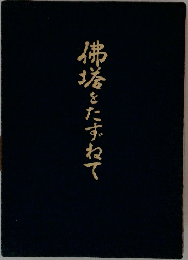 佛塔をたずねて